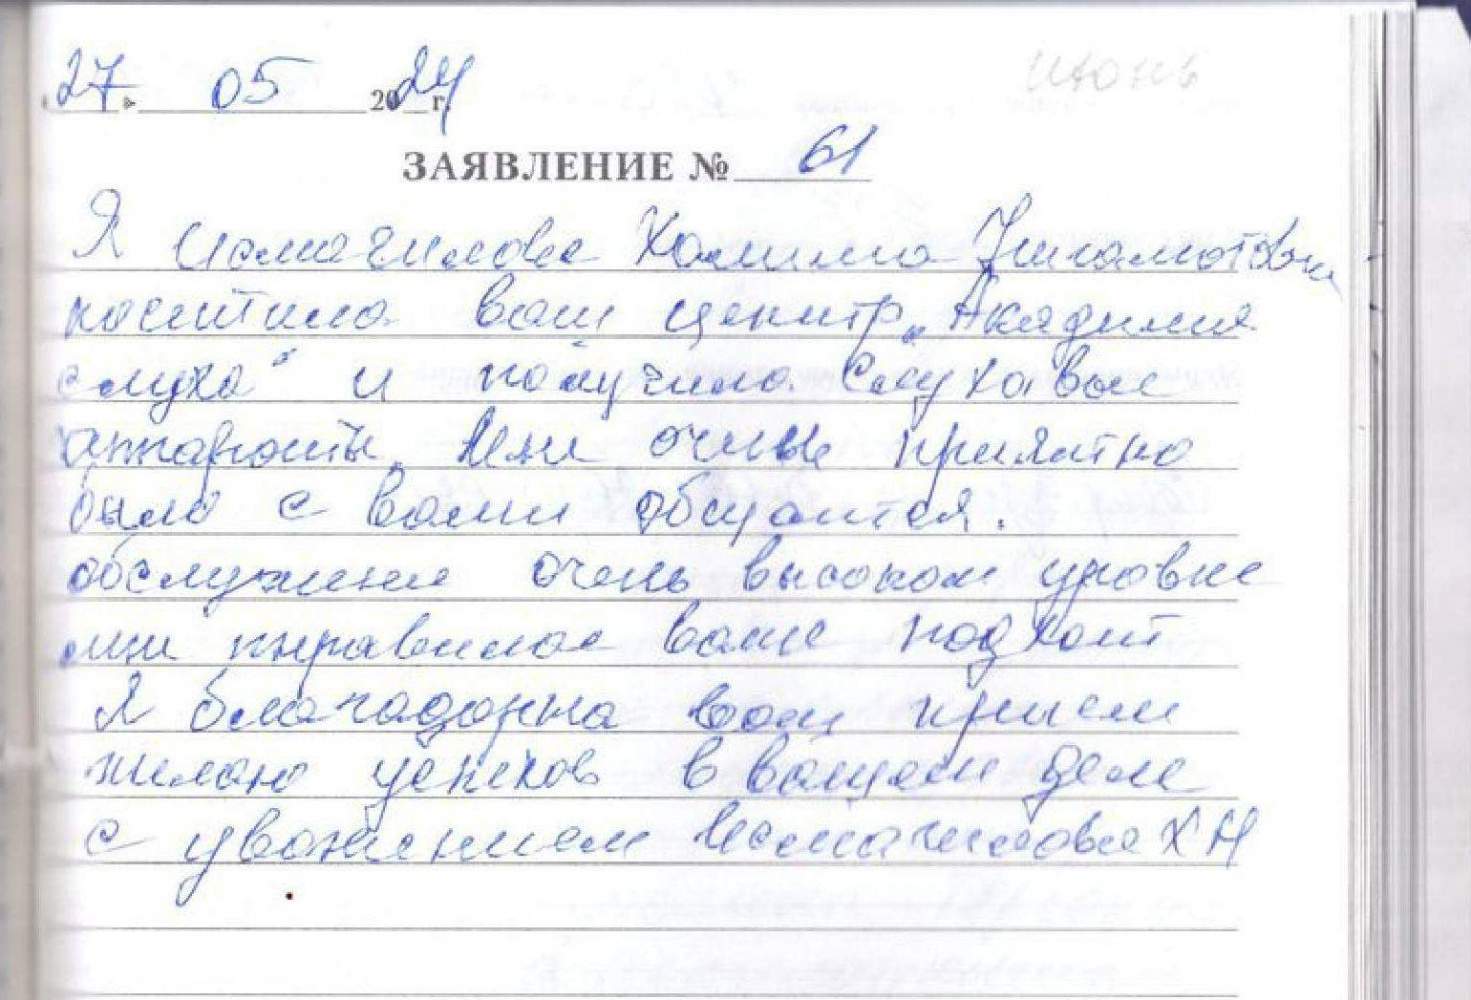 27. 05 2024 г.
июнь
ЗАЯВЛЕНИЕ № 61
Я Исмагилова Халима
поситила ваш центр „Акадимия
слуха" и получила Слухавые
аппараты. Мни очень приятно
было с вами общатся.
обслужение очень высоком уровне
мни нправилас ваше подхот
Я благадарна вам прием
жилаю успехов в вашем деле
с уважением Исмагилова Х Н